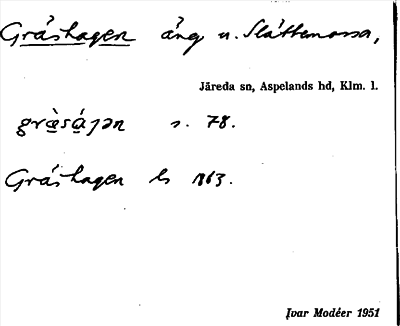 Gråshagen äng u. Slåttemossa,
Järeda sn, Aspelands hd, Klm. l.
græ̀sá̱ɡən s. 78.
Gråshagen ls 1863.
Ivar Modéer 1951